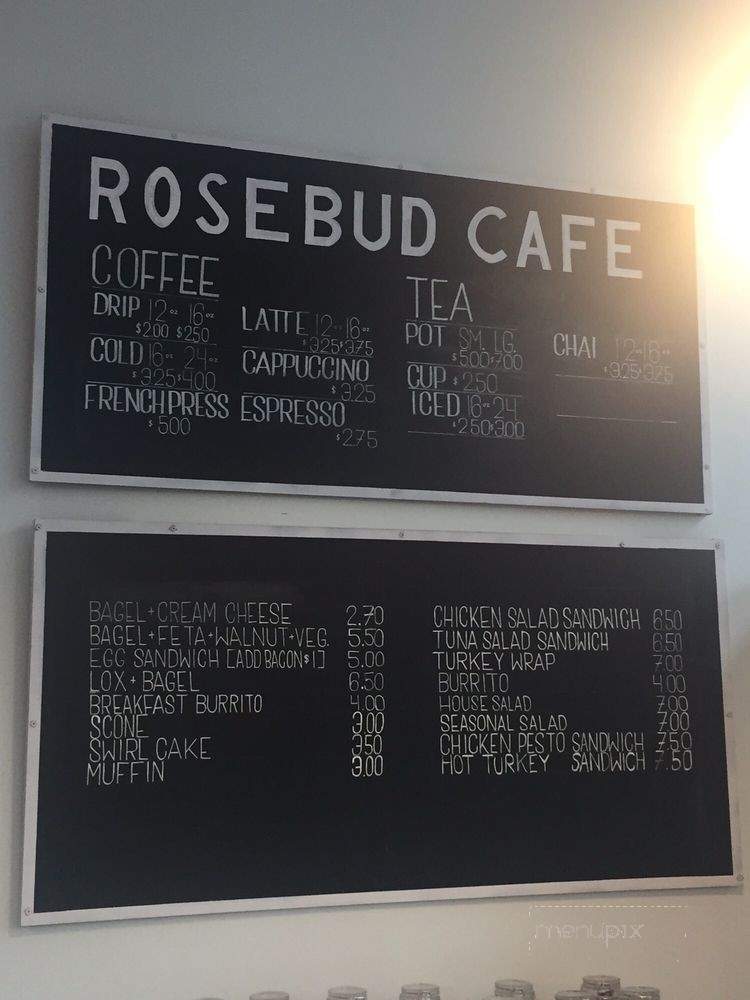 ROSEBUD CAFE
COFFEE
DRIP 12oz 16oz
$2.00 $2.50
COLD 16oz 24oz
$3.25 $4.00
FRENCH PRESS
$5.00
LATTE 12oz 16oz
$3.25 $3.75
CAPPUCCINO
$3.25
ESPRESSO
$2.75
TEA
POT SM. LG.
$5.00 $7.00
CUP $2.50
ICED 16oz 24
$2.50 $3.00
CHAI 12oz 16oz
$3.25 $3.75
BAGEL+CREAM CHEESE 2.70
BAGEL+FETA+WALNUT+VEG. 5.50
EGG SANDWICH [ADD BACON $1] 5.00
LOX + BAGEL 6.50
BREAKFAST BURRITO 4.00
SCONE 3.00
SWIRL CAKE 3.50
MUFFIN 3.00
CHICKEN SALAD SANDWICH 6.50
TUNA SALAD SANDWICH 6.50
TURKEY WRAP 7.00
BURRITO 4.00
HOUSE SALAD 7.00
SEASONAL SALAD 7.00
CHICKEN PESTO SANDWICH 7.50
HOT TURKEY SANDWICH 7.50
menupix